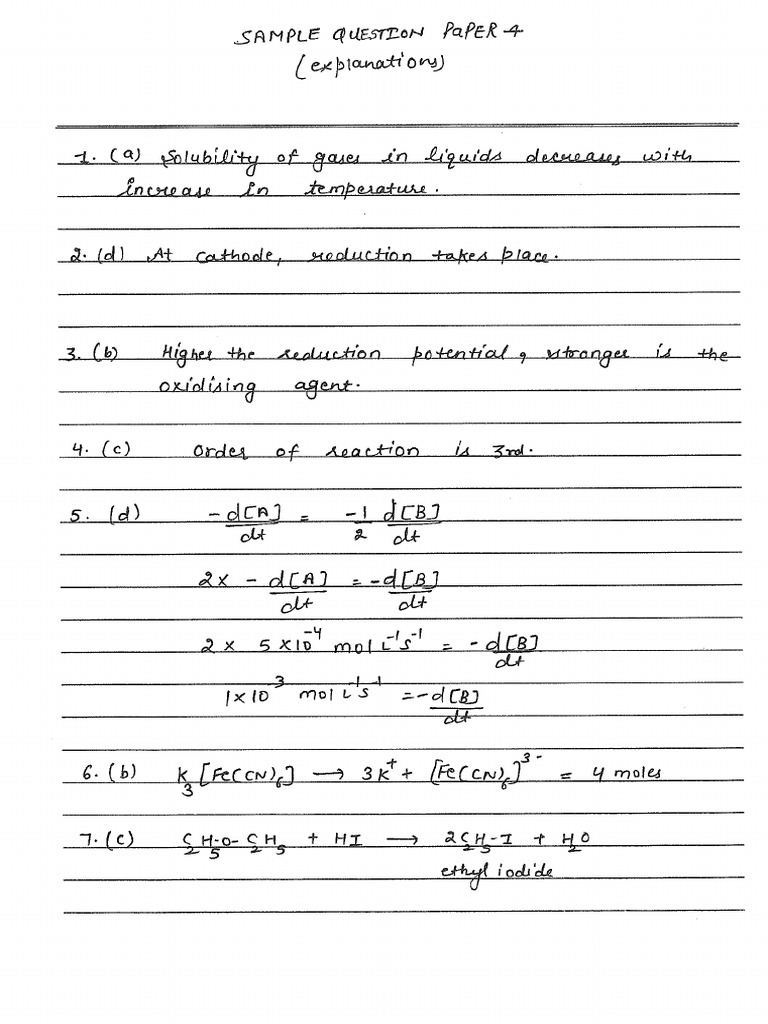 SAMPLE QUESTION PAPER-4
(explanations)
1. (a) Solubility of gases in liquids decreases with
increase in temperature.
2. (d) At cathode, reduction takes place.
3. (b) Higher the reduction potential, stronger is the
oxidising agent.
4. (c) Order of reaction is 3rd.
5. (d) -d[A]/dt = -1/2 d[B]/dt
2 x -d[A]/dt = -d[B]/dt
2 x 5x10⁻⁴ mol L⁻¹s⁻¹ = -d[B]/dt
1x10³ mol L⁻¹s⁻¹ = -d[B]/dt
6. (b) K₃[Fe(CN)₆] → 3K⁺ + [Fe(CN)₆]³⁻ = 4 moles
7. (c) C₂H₅-O-C₂H₅ + HI → 2C₂H₅-I + H₂O
ethyl iodide